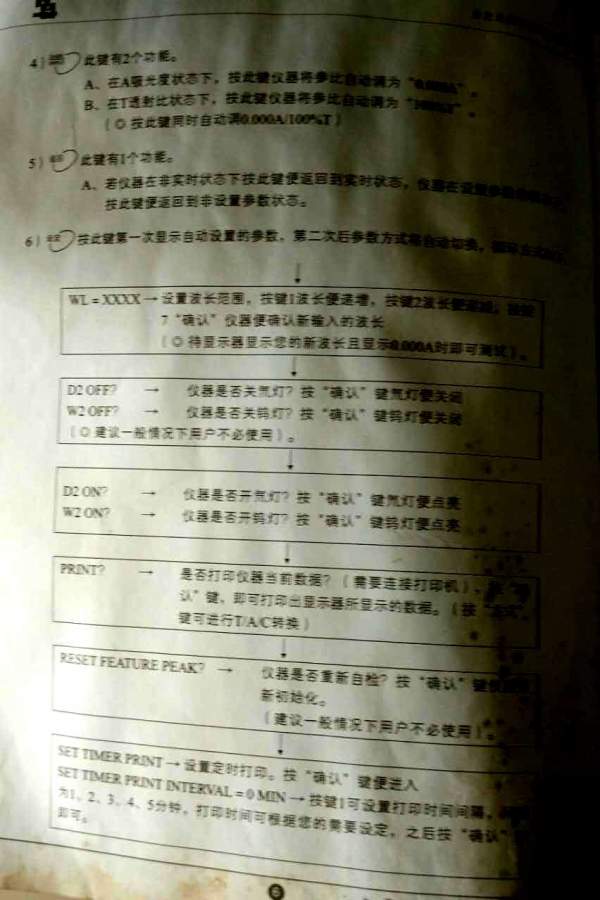 4）此键有2个功能。
A、在A吸光度状态下，按此键仪器将参比自动调为“0.000A”。
B、在T透射比状态下，按此键仪器将参比自动调为“100%T”。
（◎ 按此键同时自动调0.000A/100%T）
5）此键有1个功能。
A、若仪器在非实时状态下按此键便返回到实时状态，仪器在设置参数
按此键便返回到非设置参数状态。
6）按此键第一次显示自动设置的参数，第二次后参数方式将自动切换，
WL = XXXX → 设置波长范围，按键1波长便递增，按键2波长便递减，按键
7“确认”仪器便确认新输入的波长
（◎ 待显示器显示您的新波长且显示0.000A时即可测试）。
D2 OFF? → 仪器是否关氘灯？按“确认”键氘灯便关闭
W2 OFF? → 仪器是否关钨灯？按“确认”键钨灯便关闭
（◎ 建议一般情况下用户不必使用）。
D2 ON? → 仪器是否开氘灯？按“确认”键氘灯便点亮
W2 ON? → 仪器是否开钨灯？按“确认”键钨灯便点亮
PRINT? → 是否打印仪器当前数据？（需要连接打印机），按“确
认”键，即可打印出显示器所显示的数据。（按“方式”
键可进行T/A/C转换）
RESET FEATURE PEAK? → 仪器是否重新自检？按“确认”键
新初始化。
（建议一般情况下用户不必使用）。
SET TIMER PRINT → 设置定时打印。按“确认”键便进入
SET TIMER PRINT INTERVAL = 0 MIN → 按键1可设置打印时间间隔，
为1、2、3、4、5分钟，打印时间可根据您的需要设定，之后按“确认”
即可。
6